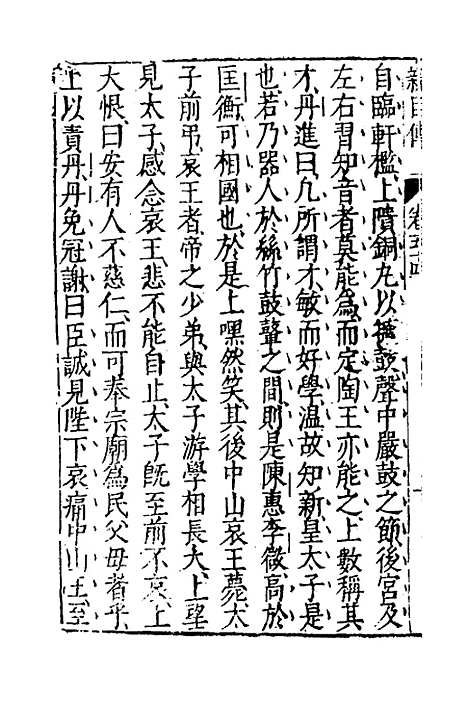 自臨軒檻上隤銅丸以擿鼓聲中嚴鼓之節後宮及
左右習知音者莫能為而定陶王亦能之上數稱其
才丹進曰凡所謂才敏而好學温故知新皇太子是
也若乃器人於絲竹鼓鼙之間則是陳惠李微高於
匡衡可相國也於是上嘿然笑其後中山哀王薨太
子前弔哀王者帝之少弟與太子游學相長大上望
見太子感念哀王悲不能自止太子既至前不哀上
大恨曰安有人不慈仁而可奉宗廟為民父母者乎
上以責丹丹免冠謝曰臣誠見陛下哀痛中山王至